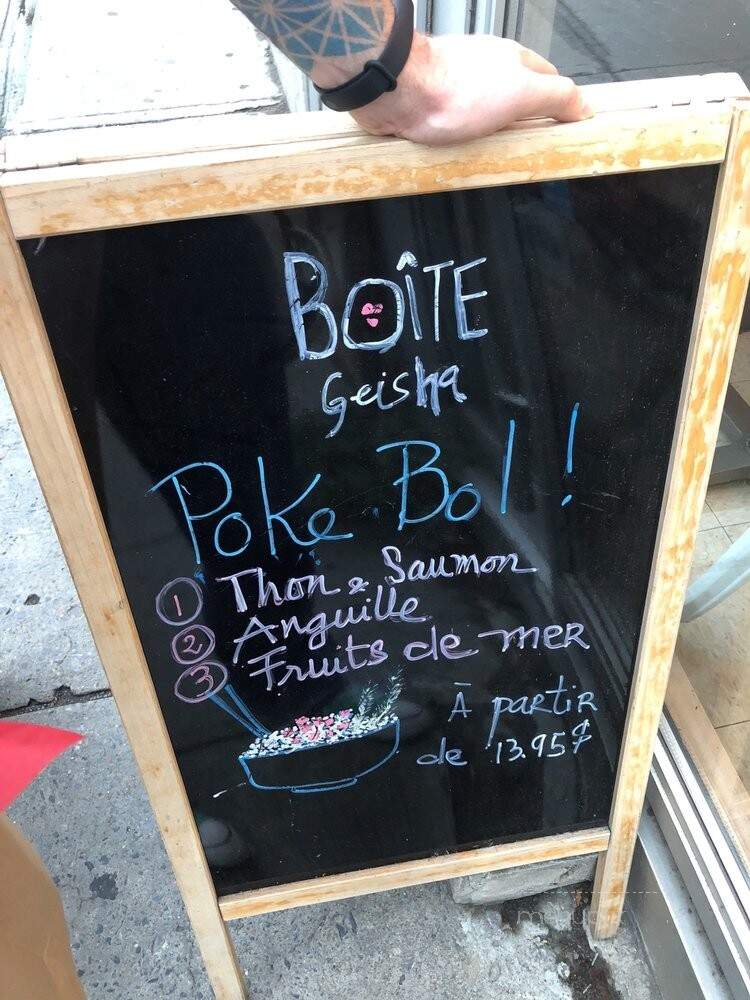 BOÎTE
Geisha
Poke Bol !
1 Thon & Saumon
2 Anguille
3 Fruits de mer
À partir
de 13.95$